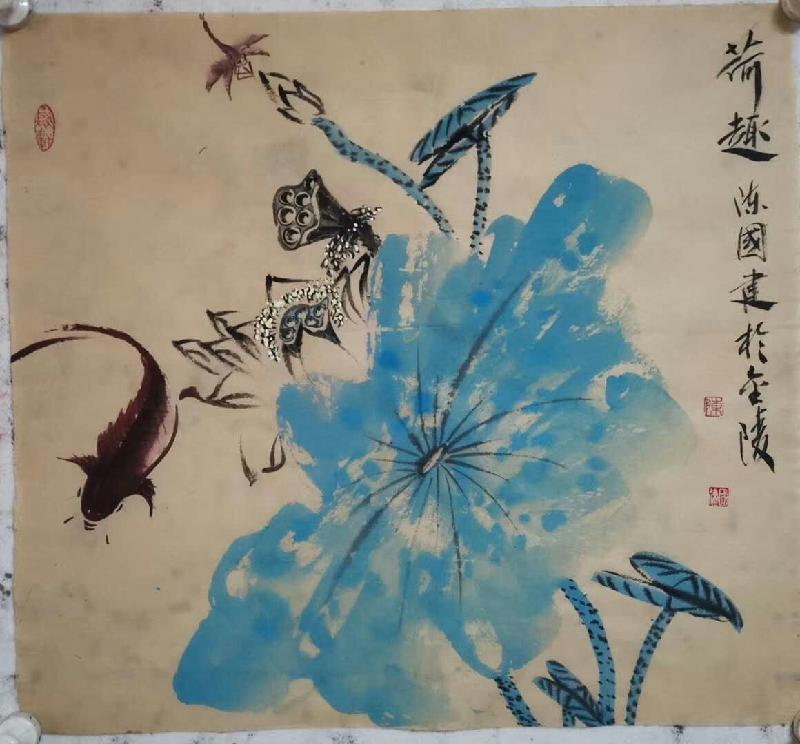 荷趣 陈國建於金陵